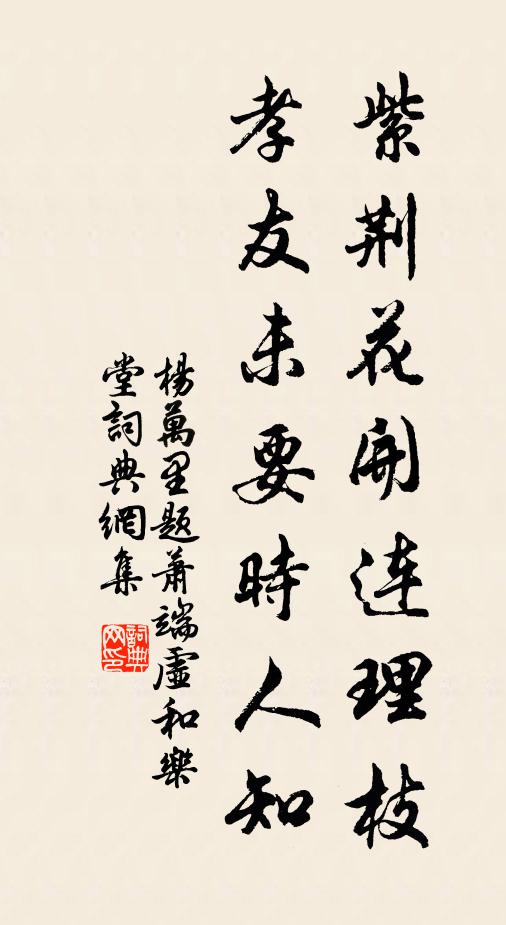 紫荆花開連理枝
孝友未要時人知
楊萬里題蕭端虛和樂
堂詞典網集
詞典
网印